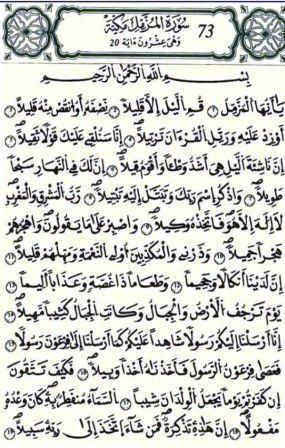 سورة المزمل مكية 73
وهى عشرون ءاية 20
بسم الله الرحمن الرحيم
يأيها المزمل ١ قم اليل إلا قليلا ٢ نصفه أو انقص منه قليلا ٣
أو زد عليه ورتل القرءان ترتيلا ٤ إنا سنلقى عليك قولا ثقيلا ٥
إن ناشئة اليل هى أشد وطئا وأقوم قيلا ٦ إن لك فى النهار سبحا
طويلا ٧ واذكر اسم ربك وتبتل إليه تبتيلا ٨ رب المشرق والمغرب
لا إله إلا هو فاتخذه وكيلا ٩ واصبر على ما يقولون واهجرهم
هجرا جميلا ١٠ وذرنى والمكذبين أولى النعمة ومهلهم قليلا ١١
إن لدينا أنكالا وجحيما ١٢ وطعاما ذا غصة وعذابا أليما ١٣
يوم ترجف الأرض والجبال وكانت الجبال كثيبا مهيلا ١٤
إنا أرسلنا إليكم رسولا شاهدا عليكم كما أرسلنا إلى فرعون رسولا ١٥
فعصى فرعون الرسول فأخذناه أخذا وبيلا ١٦ فكيف تتقون
إن كفرتم يوما يجعل الولدان شيبا ١٧ السماء منفطر به كان وعده
مفعولا ١٨ إن هذه تذكرة فمن شاء اتخذ إلى ربه سبيلا ١٩